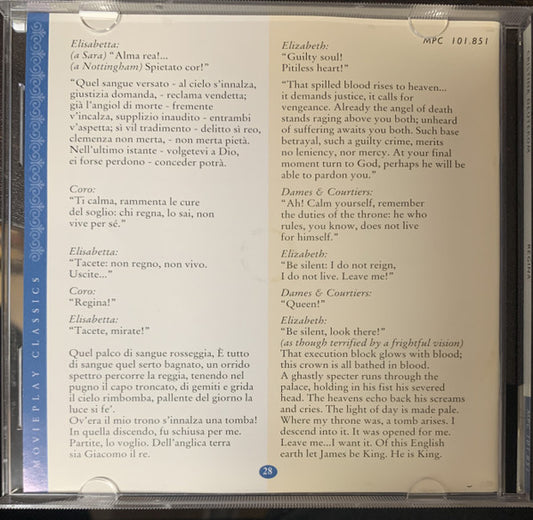 Elisabetta:
(a Sara) “Alma rea!...
(a Nottingham) Spietato cor!”
“Quel sangue versato - al cielo s’innalza,
giustizia domanda, - reclama vendetta;
già l’angiol di morte - fremente
v’incalza, supplizio inaudito - entrambi
v’aspetta; sì vil tradimento - delitto sì reo,
clemenza non merta, - non merta pietà.
Nell’ultimo istante - volgetevi a Dio,
ei forse perdono - conceder potrà.
Coro:
“Ti calma, rammenta le cure
del soglio: chi regna, lo sai, non
vive per sé.”
Elisabetta:
“Tacete: non regno, non vivo.
Uscite...”
Coro:
“Regina!”
Elisabetta:
“Tacete, mirate!”
Quel palco di sangue rosseggia, È tutto
di sangue quel serto bagnato, un orrido
spettro percorre la reggia, tenendo nel
pugno il capo troncato, di gemiti e grida
il cielo rimbomba, pallente del giorno la
luce si fe’.
Ov’era il mio trono s’innalza una tomba!
In quella discendo, fu schiusa per me.
Partite, lo voglio. Dell’anglica terra
sia Giacomo il re.
MPC 101.851
Elizabeth:
“Guilty soul!
Pitiless heart!”
“That spilled blood rises to heaven...
it demands justice, it calls for
vengeance. Already the angel of death
stands raging above you both; unheard
of suffering awaits you both. Such base
betrayal, such a guilty crime, merits
no leniency, nor mercy. At your final
moment turn to God, perhaps he will be
able to pardon you.”
Dames & Courtiers:
“Ah! Calm yourself, remember
the duties of the throne: he who
rules, you know, does not live
for himself.”
Elizabeth:
“Be silent: I do not reign,
I do not live. Leave me!”
Dames & Courtiers:
“Queen!”
Elizabeth:
“Be silent, look there!”
(as though terrified by a frightful vision)
That execution block glows with blood;
this crown is all bathed in blood.
A ghastly specter runs through the
palace, holding in his fist his severed
head. The heavens echo back his screams
and cries. The light of day is made pale.
Where my throne was, a tomb arises. I
descend into it. It was opened for me.
Leave me...I want it. Of this English
earth let James be King. He is King.
28
MOVIEPLAY CLASSICS
REGINA